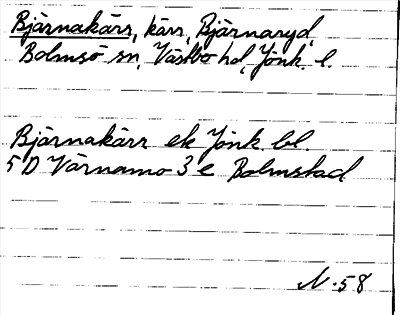 Bjärnakärr, kärr, Bjärnaryd,
Bolmsö sn, Västbo hd, Jönk. l.
Bjärnakärr ek Jönk. bl.
5 D Värnamo 3 e Bolmstad
N-58